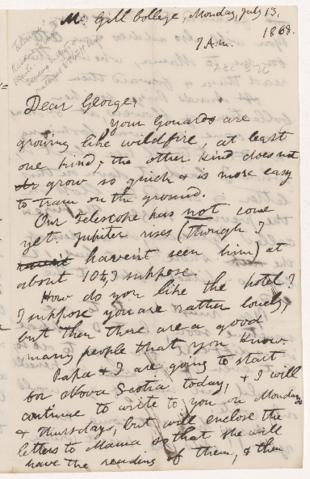 McGill College, Monday, July 13.
1868.
7 A.m.
Dear George,
Your Gourds are
growing like wildfire, at least
one kind; the other kind does not
grow so quick & is more easy
to train on the ground.
Our telescope has not come
yet, Jupiter rises (though I
haven't seen him) at
about 10½, I suppose.
How do you like the hotel?
I suppose you are rather lonely,
but then there are a good
many people that you know.
Papa & I are going to start
for Nova Scotia today, & I will
continue to write to you on Mondays
& Thursdays, but will enclose the
letters to Mama so that she will
have the reading of them, & then